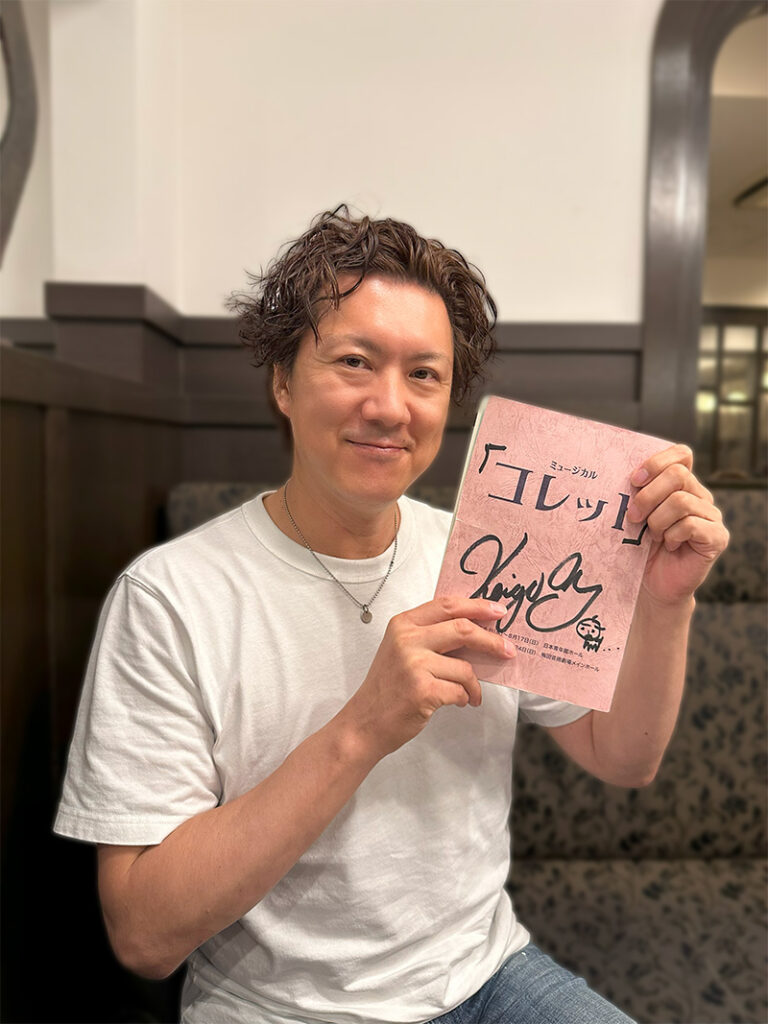 ミュージカル
「コレット」
Keigo
8月17日(日) 日本青年館ホール
4日(日) 梅田芸術劇場メインホール